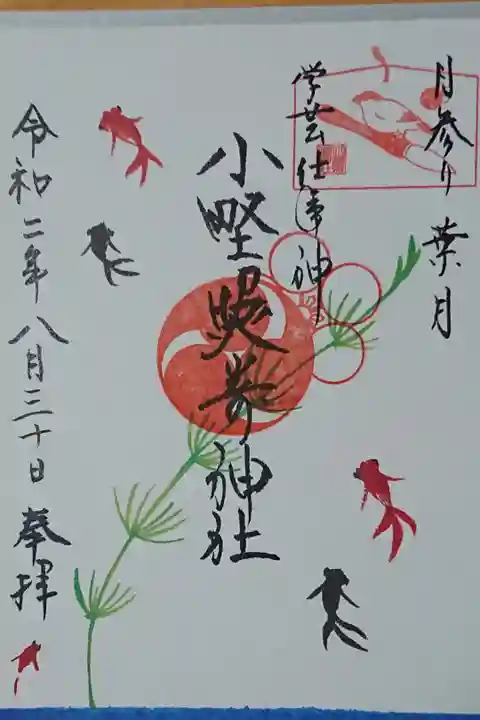 月参り 葉月
学芸仕事神
小野照崎神社
令和二年八月三十日 奉拝